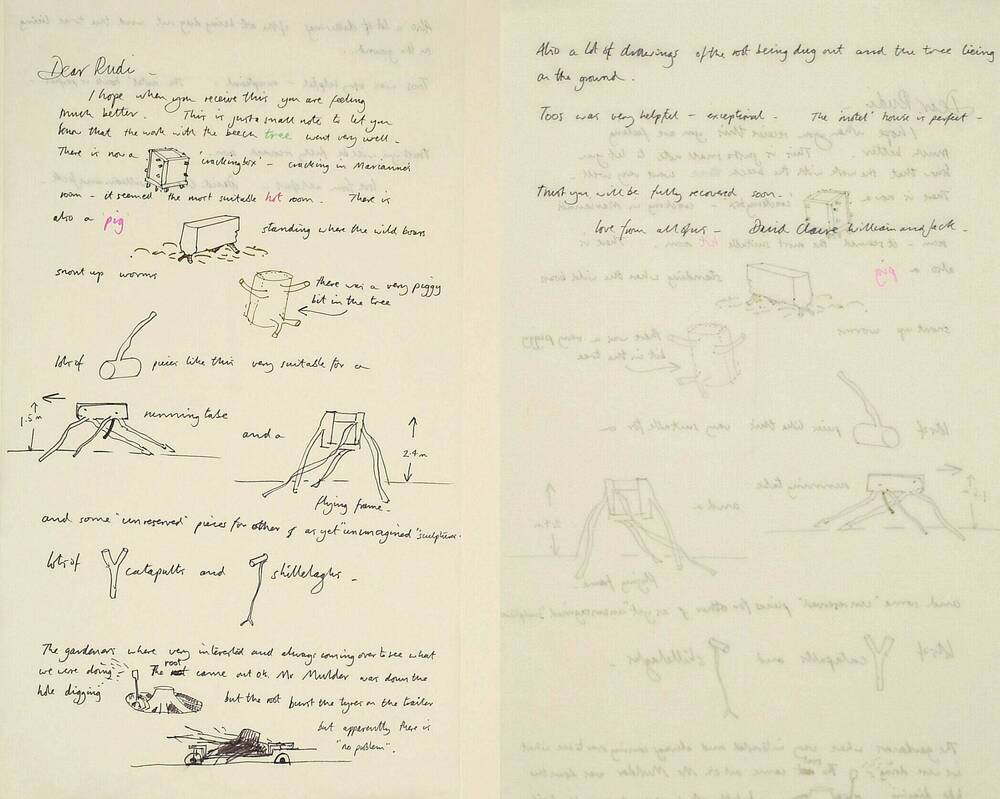 Dear Rudi -
I hope when you receive this you are feeling
much better. This is just a small note to let you
know that the work with the beech tree went very well -
There is now a 'crackingbox' - cracking in Marianne's
room - it seemed the most suitable hot room. There is
also a pig
standing where the wild boars
snout up worms
there was a very piggy
bit in the tree
lots of pieces like this very suitable for a
1.5 m
running table
and a
2.4 m
flying frame -
and some "unreserved" pieces for other of as yet "unimagined" sculptures.
lots of catapults and shillelaghs -
The gardeners where very interested and always coming over to see what
we were doing The root came out ok. Mr Mulder was down the
hole digging but the root burst the tyres on the trailer
but apparently there is
"no problem".
Also a lot of drawings of the root being dug out and the tree lieing
on the ground.
Toos was very helpful - exceptional - The 'motel' house is perfect -
trust you will be fully recovered soon -
love from all of us - David Claire William and Jack -